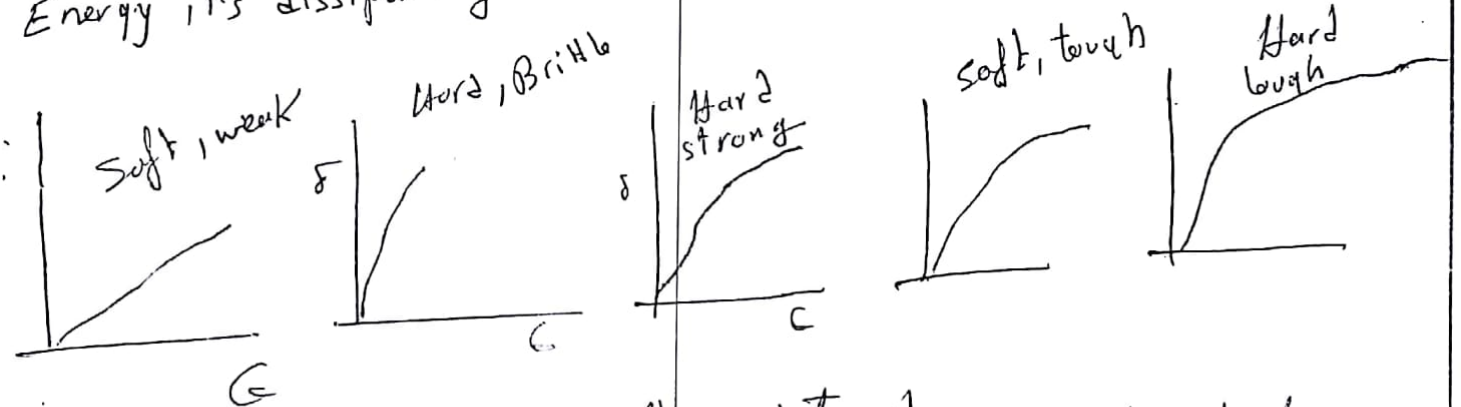 Energy, it's
Soft, weak
Hard, Brittle
Hard
strong
soft, tough
Hard
tough
δ
δ
G
C
C